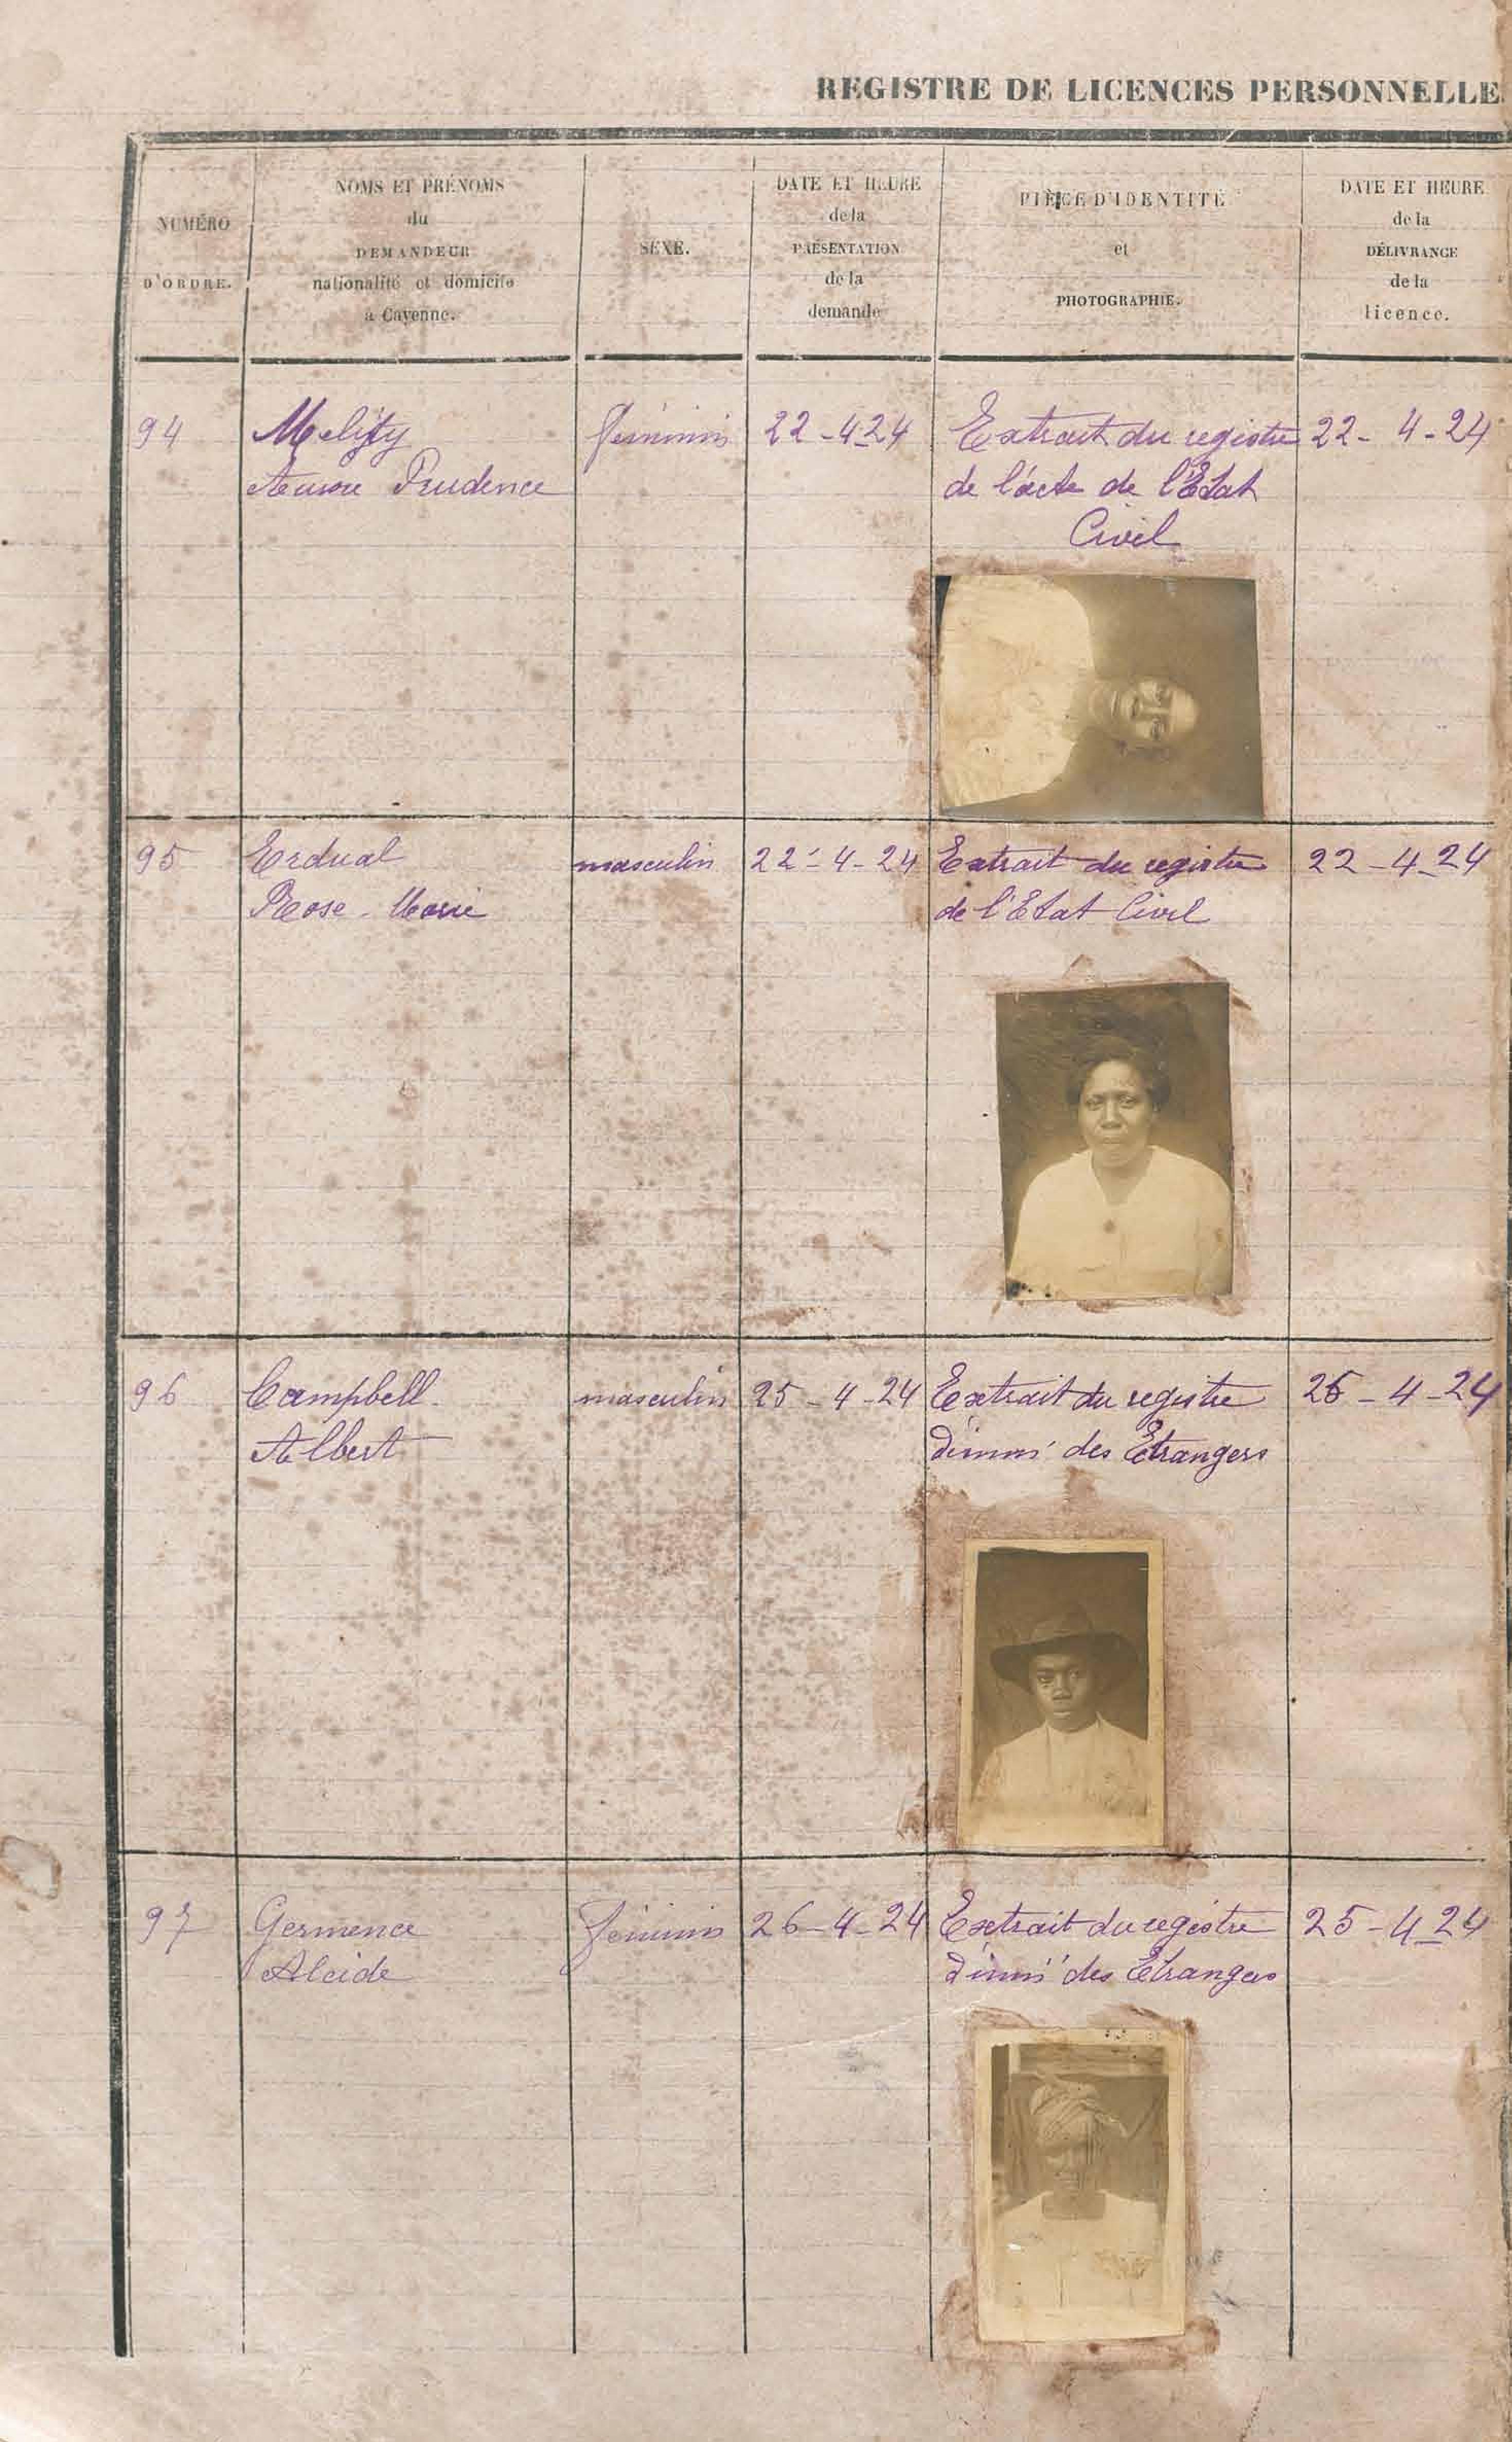 REGISTRE DE LICENCES PERSONNELLE
NUMÉRO
D'ORDRE.
NOMS ET PRÉNOMS
du
DEMANDEUR
nationalité et domicile
à Cayenne.
SEXE.
DATE ET HEURE
de la
PRÉSENTATION
de la
demande
PIÈCE D'IDENTITÉ
et
PHOTOGRAPHIE.
DATE ET HEURE
de la
DÉLIVRANCE
de la
licence.
94
Prudence
féminin
22-4-24
Extrait du registre
de l'acte de l'Etat
Civil
22-4-24
95
Erdual
Rose-Marie
masculin
22-4-24
Extrait du registre
de l'Etat Civil
22-4-24
96
Campbell
Albert
masculin
25-4-24
Extrait du registre
d'imm des Etrangers
25-4-24
97
Germence
Alcide
féminin
26-4-24
Extrait du registre
d'imm des Etrangers
25-4-24